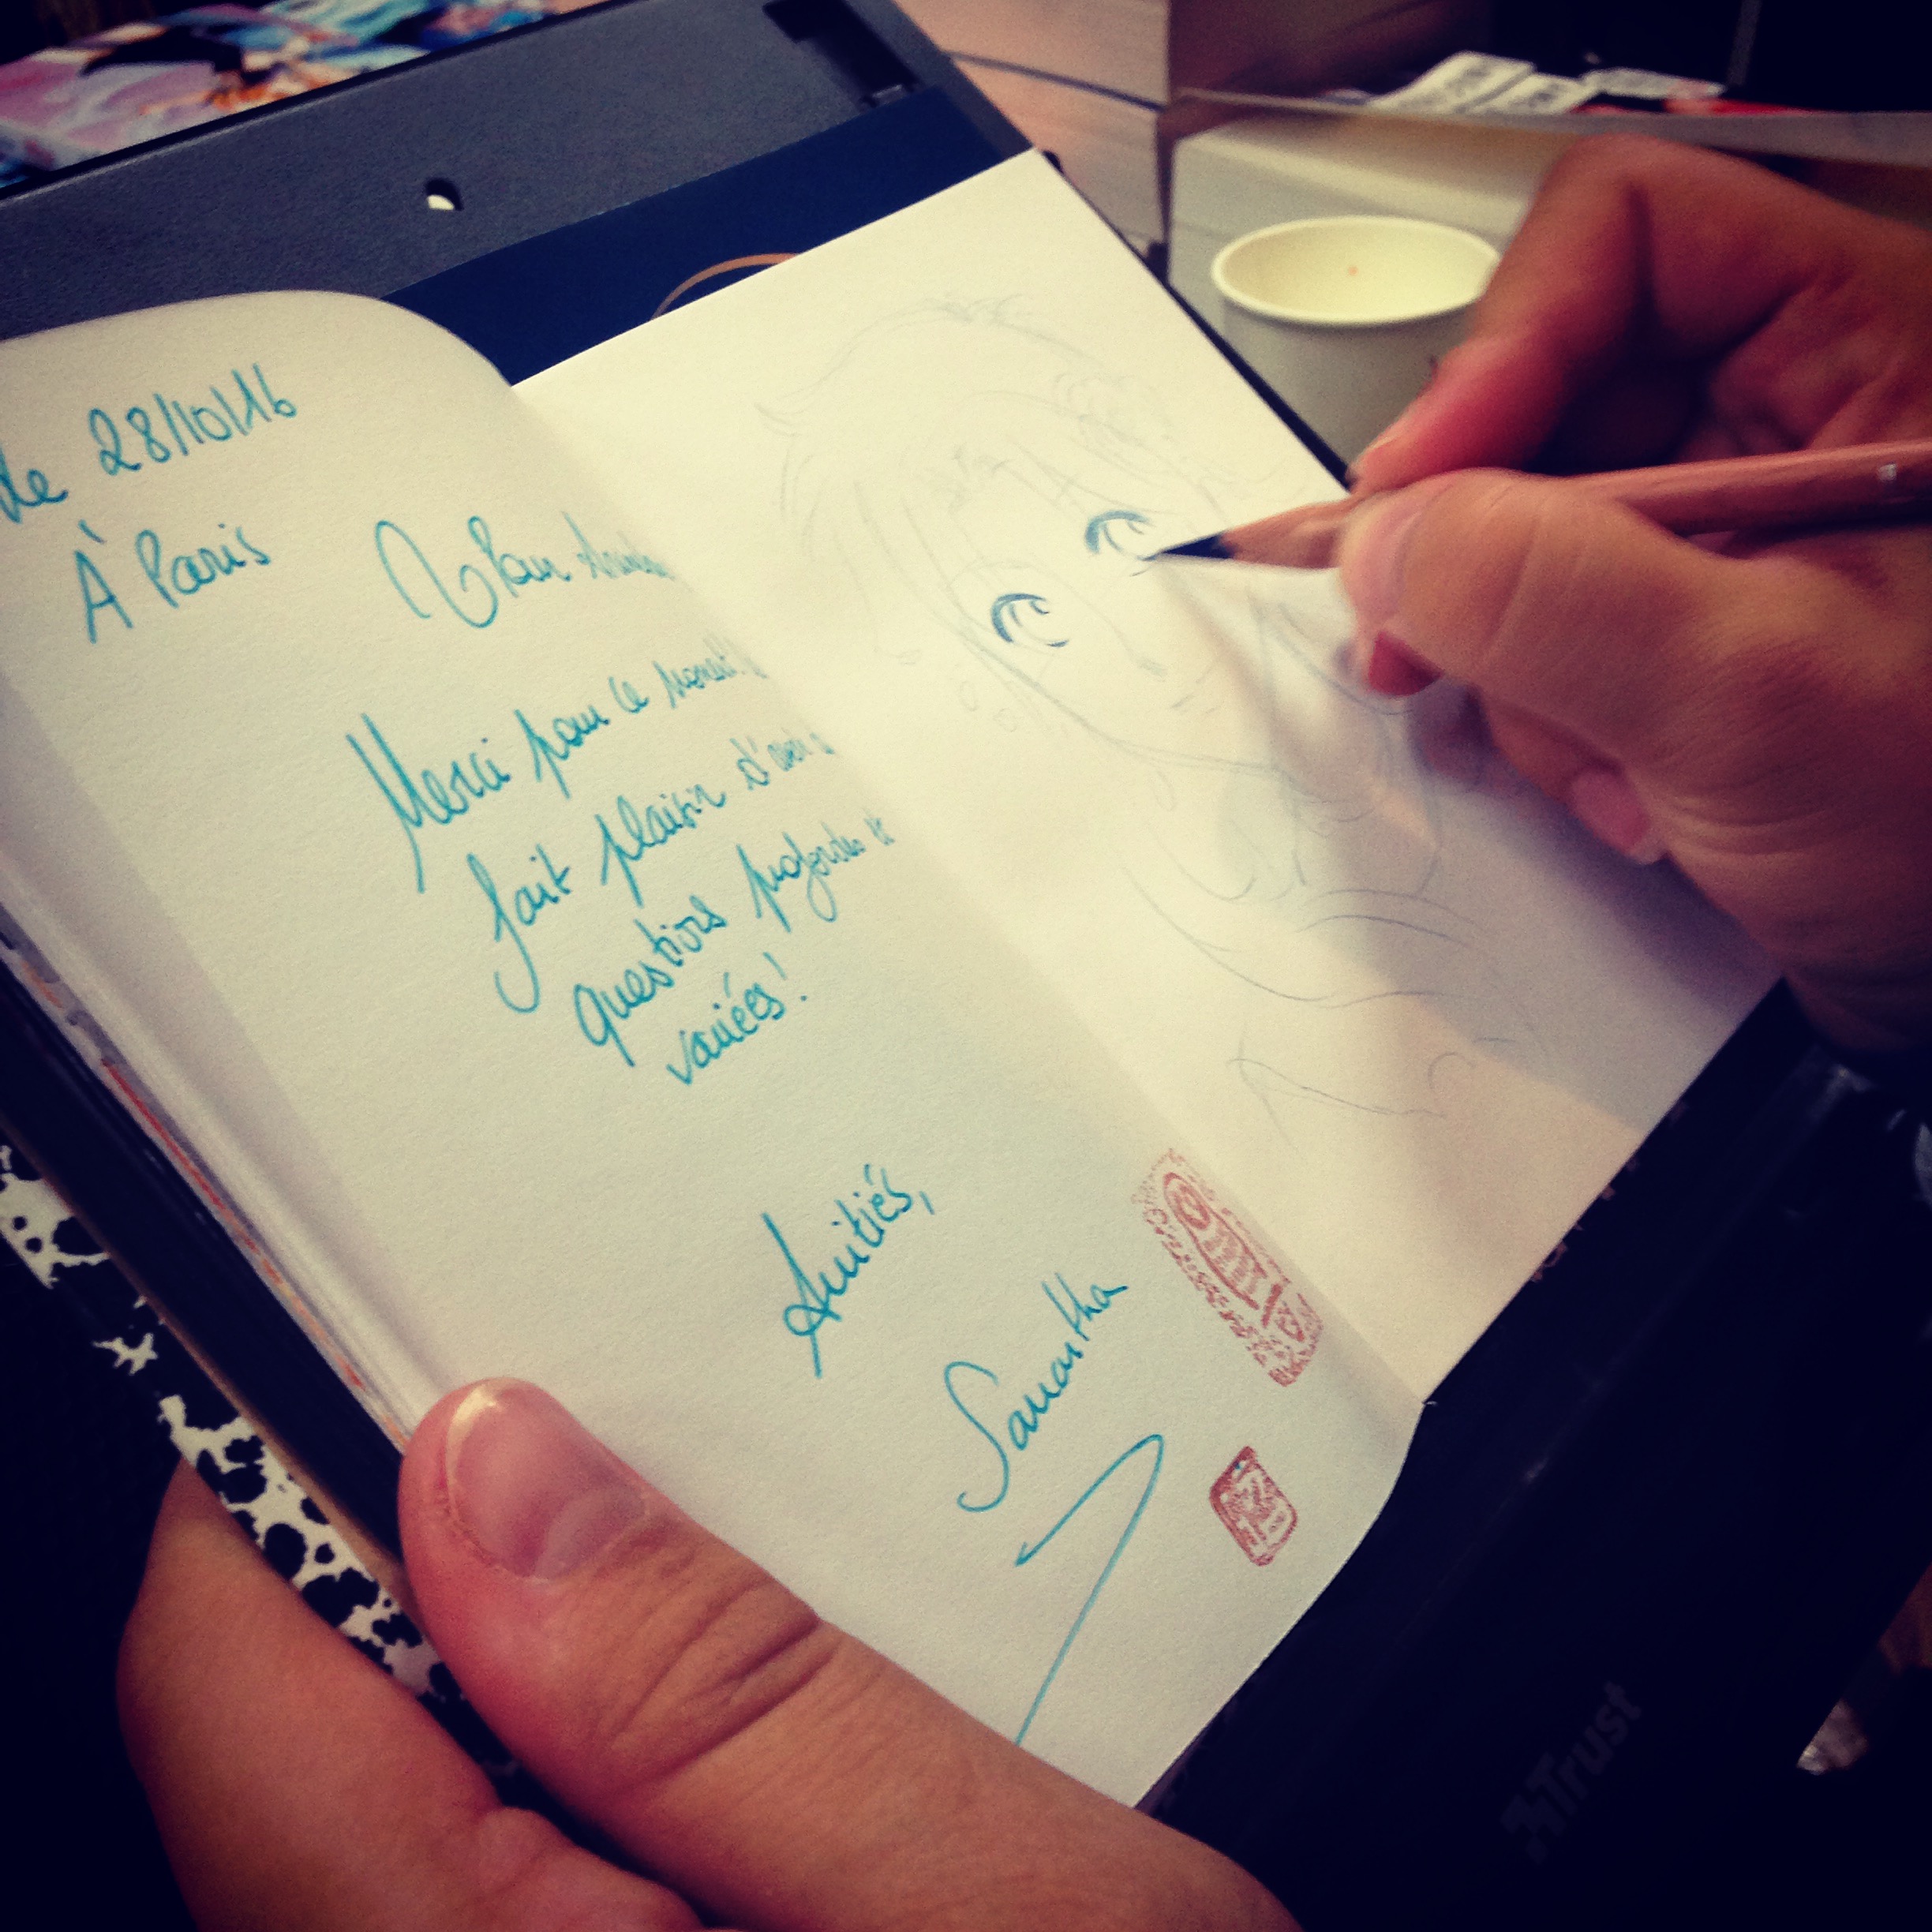 Le 28/10/16
À Paris
Pour
Merci pour ce moment!
fait plaisir d'avoir
questions profondes et
variées!
Amitiés,
Samantha
Trust